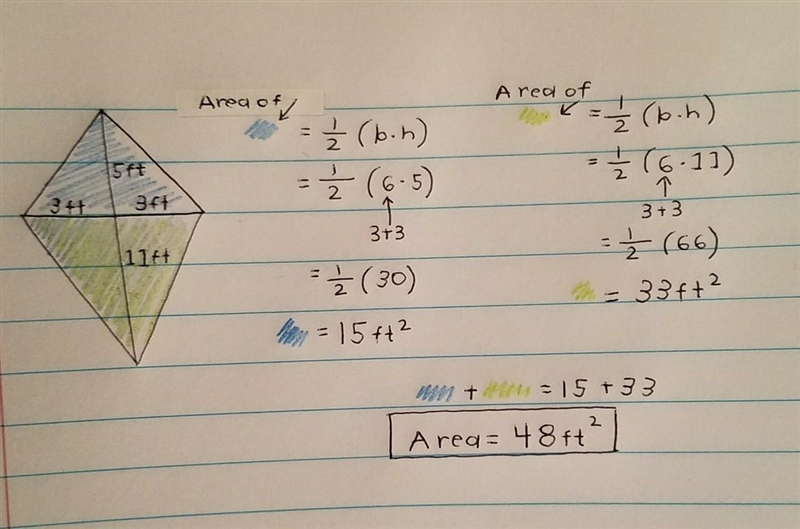 5ft
3ft 3ft
11ft
Area of
= 1/2 (b·h)
= 1/2 (6·5)
3+3
= 1/2 (30)
= 15ft²
Area of
= 1/2 (b·h)
= 1/2 (6·11)
3+3
= 1/2 (66)
= 33ft²
+ = 15 + 33
Area = 48ft²